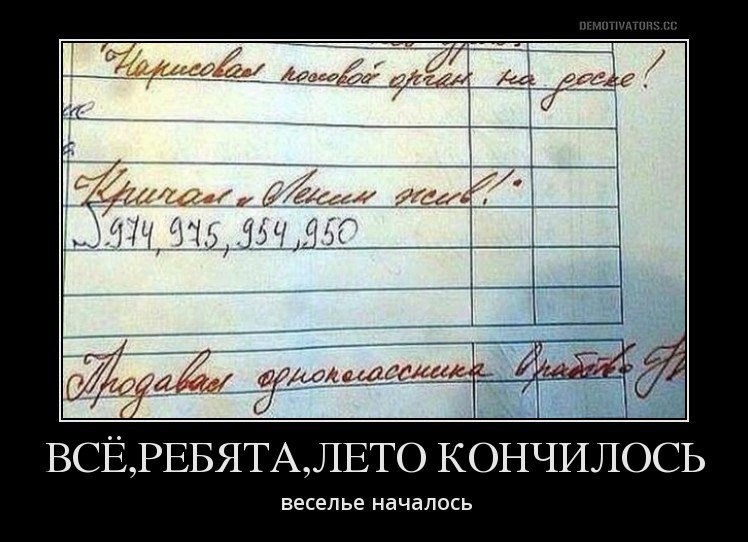 DEMOTIVATORS.CC
Нарисовал половой орган на доске!
Кричал "Ленин жив!"
974, 975, 954, 950
Продавал одноклассника в рабство
ВСЁ,РЕБЯТА,ЛЕТО КОНЧИЛОСЬ
веселье началось